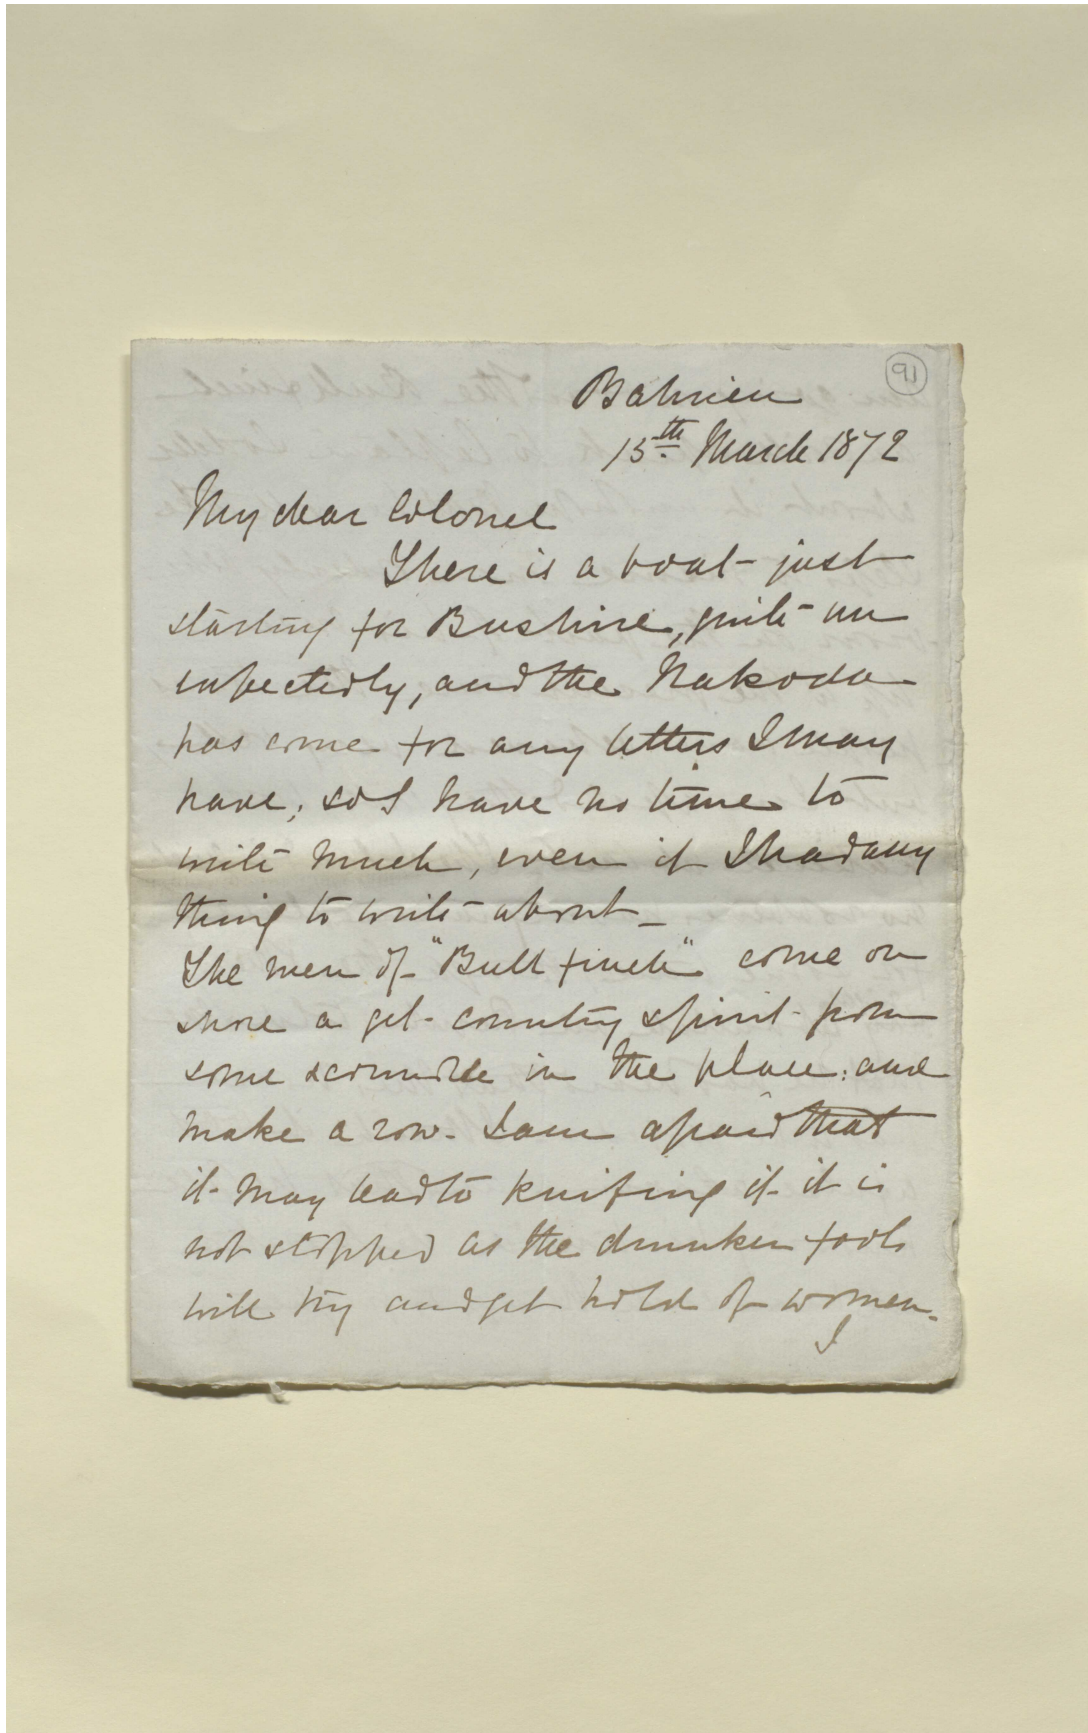 91
Bahrien
15th March 1872
My dear Colonel
There is a boat just
starting for Bushire, quite un
expectedly, and the Nakoda
has come for any letters I may
have, so I have no time to
write much, even if I had any
thing to write about_
The men of "Bull finch" come on
shore a get country spirit from
some scoundle in the place: and
make a row. I am afraid that
it may lead to knifing if it is
not stopped as the drunken fools
will try and get hold of women.
I